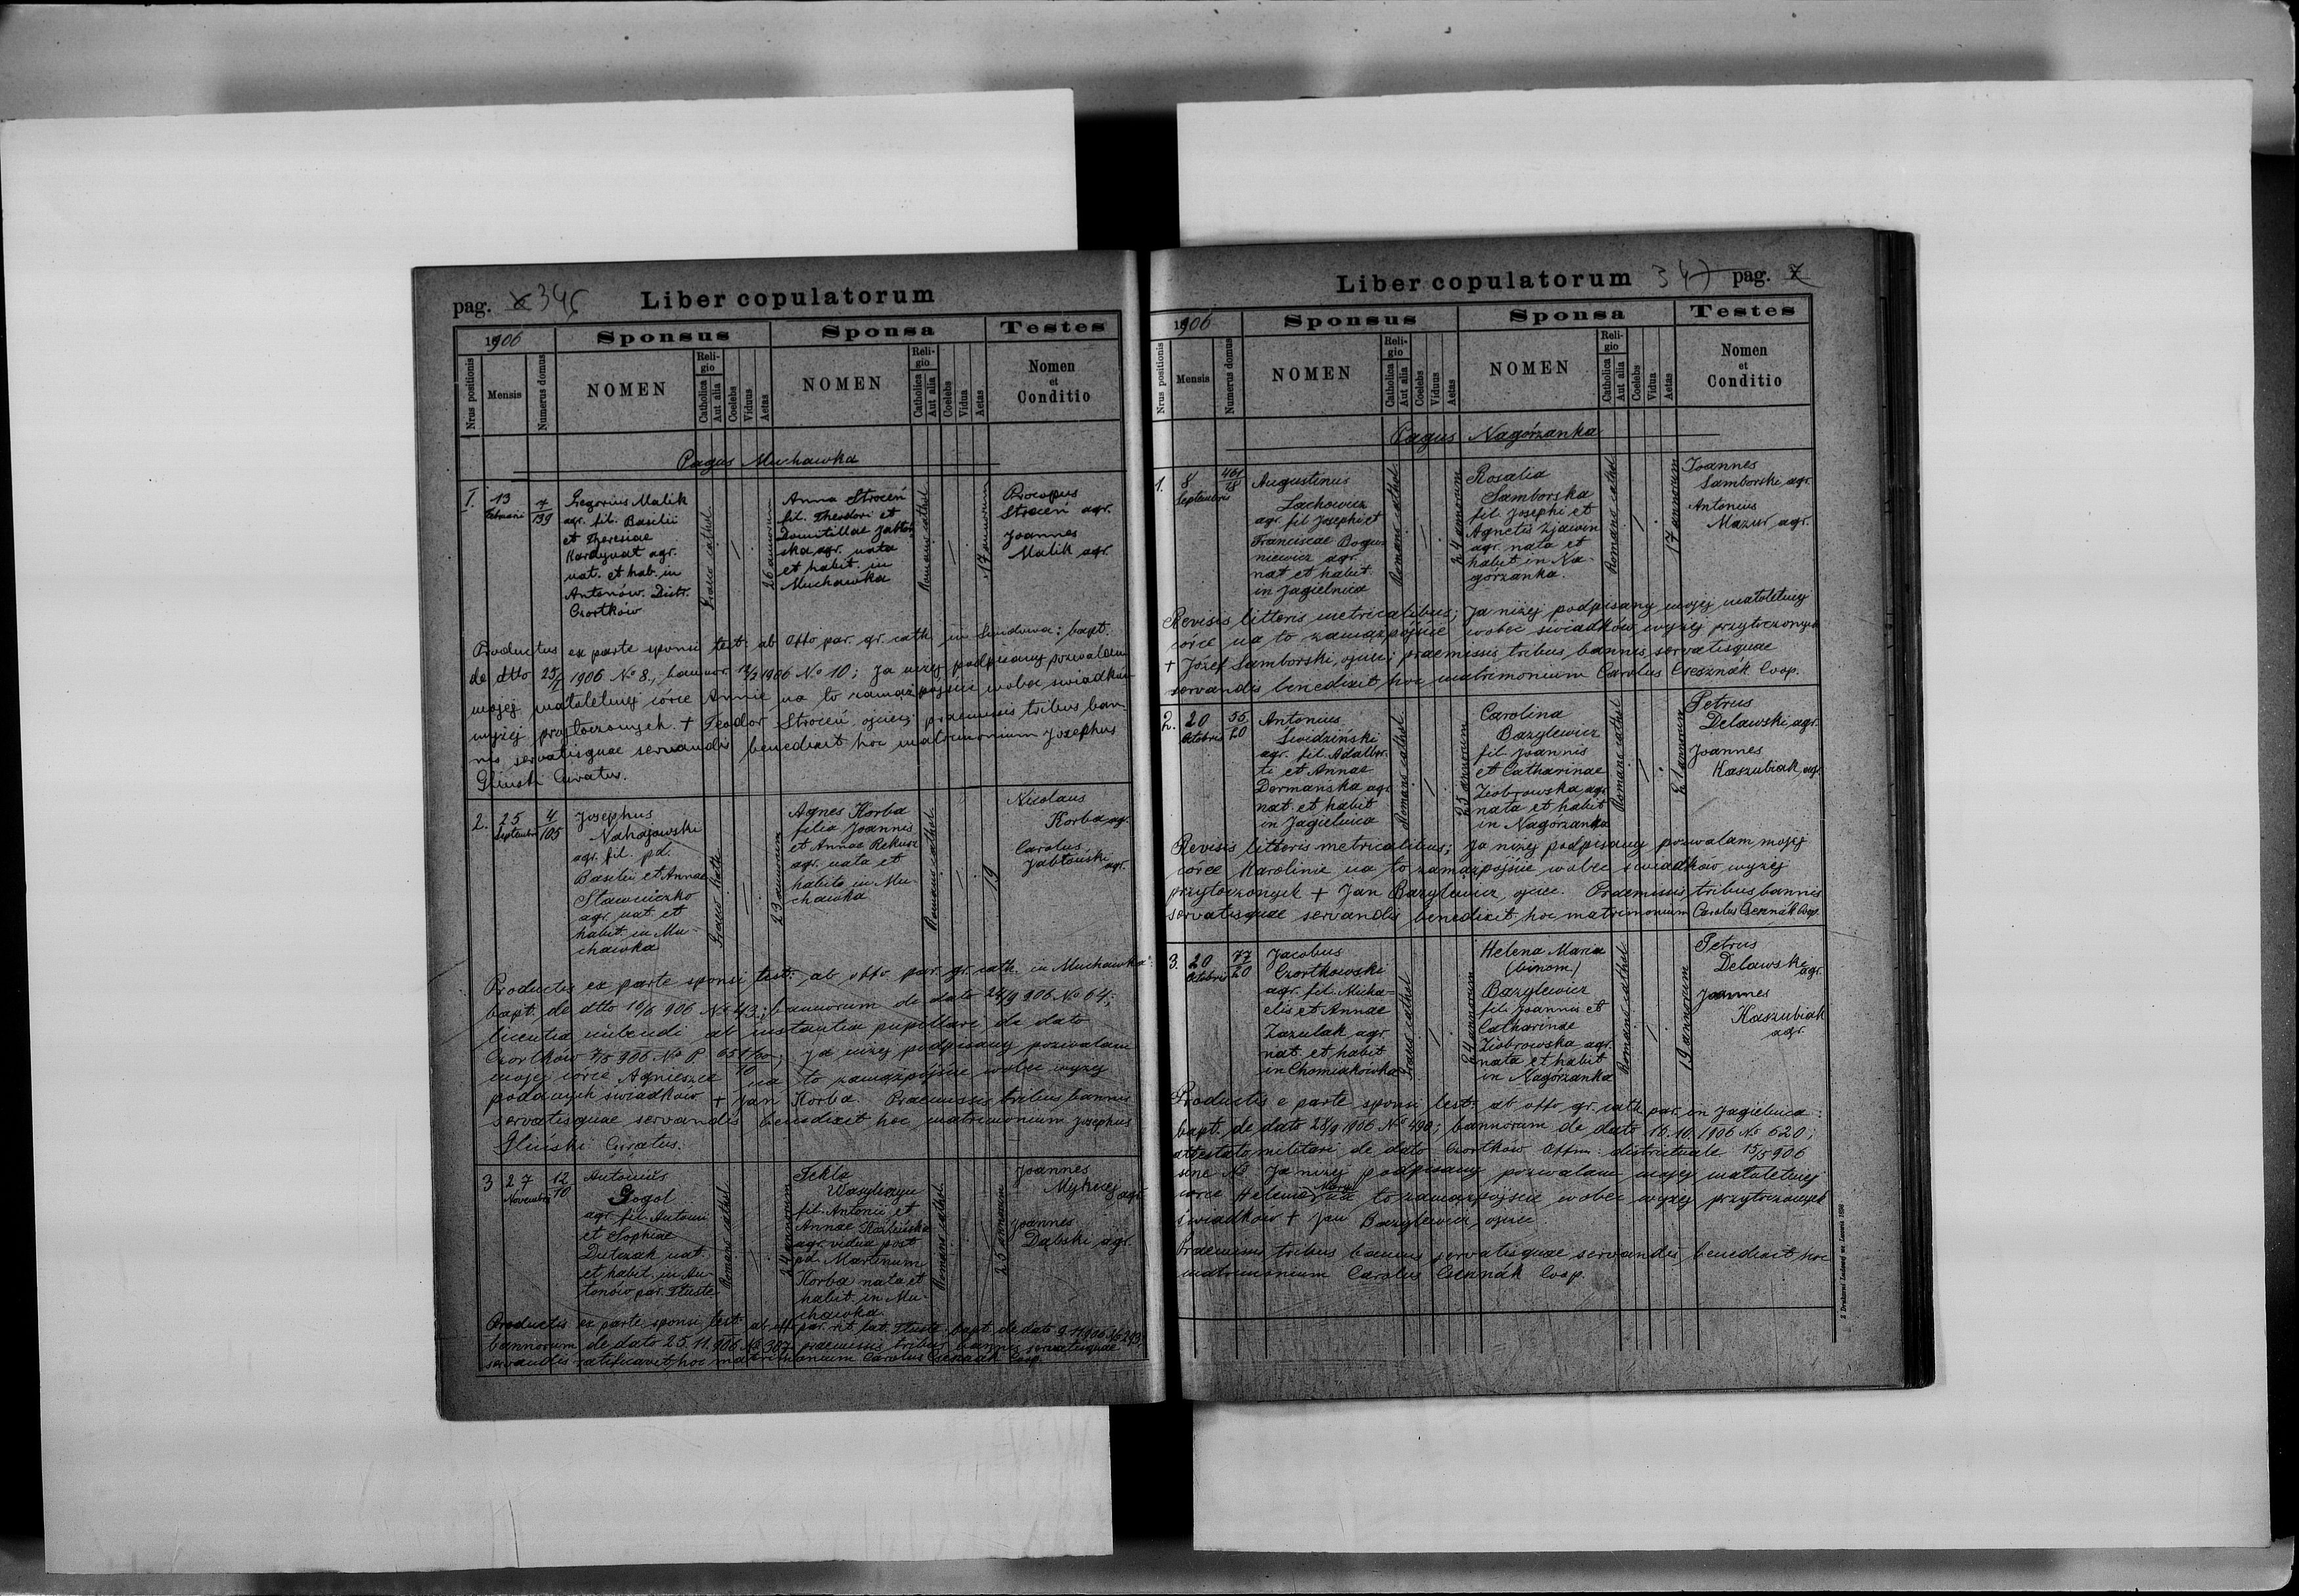 pag. 346 Liber copulatorum
1906 Sponsus Sponsa Testes
Nrus positionis Mensis Numerus domus NOMEN Religio Catholica Aut alia Coelebs Viduus Aetas NOMEN Religio Catholica Aut alia Coelebs Vidua Aetas Nomen et Conditio
Pagus Muchawka
I. 13 Februarii 7/139
Gregorius Malik
agr. fil. Basilii
et Theresiae
Kardynat agr.
nat. et hab. in
Antonów. Distr.
Czortków
Graeco cathol.
26 annorum
Anna Stroceń
fil. Theodori et
Domitillae Jabłoń
ska agr. nata
et habit. in
Muchawka
Romano cathol.
17 annorum
Procopus
Stroceń agr.
Joannes
Malik agr.
Productus ex parte sponsi test: ab offo par. gr. cath. in : bapt.
de dtto 25/1 1906 No 8., bannor. 12/2 1906 No 10; Ja niżej podpisany pozwalam
mojej małoletniej córce Annie na to zamążpójście wobec świadków
wyżej przytoczonych. + Teodor Strocen ojciec; praemissis tribus ban-
nis servatisquae servandis benedixit hoc matrimonium Josephus
Gliński Curatus.
2. 25 Septembris 4/105
Josephus
Nahajowski
agr. fil. pd.
Basilii et Annae
Stawniczko
agr. nat. et
habit. in Mu-
chawka
Graeco Kath.
23 annorum
Agnes Korba
filia Joannis
et Annae Rekusz
agr. nata et
habita in Mu-
chawka
Romano cathol.
19
Nicolaus
Korba agr.
Carolus
Jabłoński
agr.
Productis ex parte sponsi test: ab offo. par. gr. cath. in Muchawka:
bapt. de dtto 16/6 906 No 43.; bannorum de dato 24/9 906 No 64;
licentia nubendi ab instantia pupillari de dato
Czortków 7/5 906 No P ; Ja niżej podpisany pozwalam
mojej córce Agnieszce na to zamążpójście wobec wyżej
podanych świadków + Jan Korba. Praemissis tribus bannis
servatisquae servandis benedixit hoc matrimonium Josephus
Gliński Curatus.
3 27 Novembris 12/10
Antonius
Gogol
agr. fil. Antonii
et Sophiae
Dutczak nat.
et habit. in An-
tonów par. Tłuste
Romano cathol.
24 annorum
Tekla
Wasyliszyn
fil. Antonii et
Annae Kozłińska
agr. vidua post
pd. Martinum
Korba nata et
habit. in Mu-
chawka
Romano cathol.
25 annorum
Joannes
Mykicej agr.
Joannes
Dąbski agr.
Productis ex parte sponsi test: ab off. par. rit. lat. Tłuste bapt. de dato 9.11.906 No 293;
bannorum de dato 25.11.906 No 307 praemissis tribus bannis servatisquae
servandis ratificavit hoc matrimonium Carolus Csesznák Coop.
Liber copulatorum 347 pag. 7
1906 Sponsus Sponsa Testes
Nrus positionis Mensis Numerus domus NOMEN Religio Catholica Aut alia Coelebs Viduus Aetas NOMEN Religio Catholica Aut alia Coelebs Vidua Aetas Nomen et Conditio
Pagus Nagórzanka
1. 8 Septembris 461/18
Augustinus
Lachowicz
agr. fil. Josephi et
Franciscae Bogu-
niewicz agr.
nat et habit.
in Jagielnica
Romano cathol.
24 annorum
Rosalia
Samborska
fil. Josephi et
Agnetis Zjawin
agr. nata et
habit in Na-
górzanka.
Romano cathol.
17 annorum
Joannes
Samborski, agr.
Antonius
Mazur, agr.
Revisis litteris metricalibus; Ja niżej podpisany mojej małoletniej
córce na to zamążpójście wobec świadków wyżej przytoczonych
+ Józef Samborski, ojciec; praemissis tribus bannis servatisquae
servandis benedixit hoc matrimonium Carolus Csesznák Coop.
2. 20 Octobris 55/20
Antonius
Świdziński
agr. fil. Adalber-
ti et Annae
Dormańska agr.
nat. et habit
in Jagielnica
Romano cathol.
25 annorum
Carolina
Bazylewicz
fil. Joannis
et Catharinae
Ziobrowska agr.
nata et habit
in Nagórzanka
Romano cathol.
21 annorum
Petrus
Delawski agr.
Joannes
Kaszubiak agr.
Revisis litteris metricalibus; Ja niżej podpisany pozwalam mojej
córce Karolinie na to zamążpójście wobec świadków wyżej
przytoczonych + Jan Bazylewicz, ojciec. Praemissis tribus bannis
servatisquae servandis benedixit hoc matrimonium Carolus Csesznák Coop.
3. 20 Octobris 77/20
Jacobus
Czortkowski
agr. fil. Micha-
elis et Annae
Zazulak agr.
nat. et habit
in Chomiakówka
Graeco cathol
24 annorum
Helena Maria
(binom.)
Bazylewicz
fil. Joannis et
Catharinae
Ziobrowska agr.
nata et habit
in Nagórzanka
Romano cathol
19 annorum
Petrus
Delawski agr.
Joannes
Kaszubiak
agr.
Productis e parte sponsi test: ab offo gr. cath. par. in Jagielnica:
bapt. de dato 28/9 1906 No 490; bannorum de dato 16.10.1906 No 620;
attestato militari de dato Czortków Offm: districtuale 15/5 906
sine No Ja niżej podpisany pozwalam mojej małoletniej
córce Helenie Maryi na to zamążpójście wobec wyżej przytoczonych
świadków + Jan Bazylewicz, ojciec.
Praemissis tribus bannis servatisquae servandis benedixit hoc
matrimonium Carolus Csesznák Coop.
Z Drukarni Ludowej we Lwowie 1898